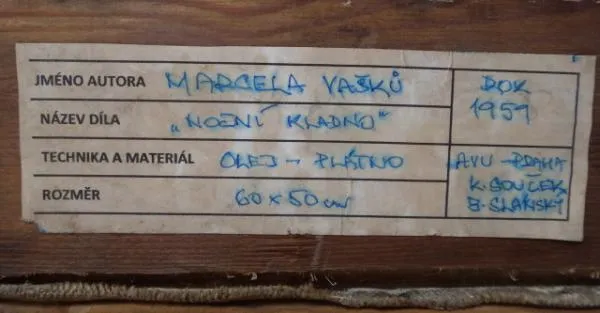 JMÉNO AUTORA MARCELA VAŠKŮ ROK
1959
NÁZEV DÍLA „NOČNÍ KLADNO"
TECHNIKA A MATERIÁL OLEJ – PLÁTNO AVU – PRAHA
K. SOUČEK
ROZMĚR 60 x 50 cm B. SLÁNSKÝ